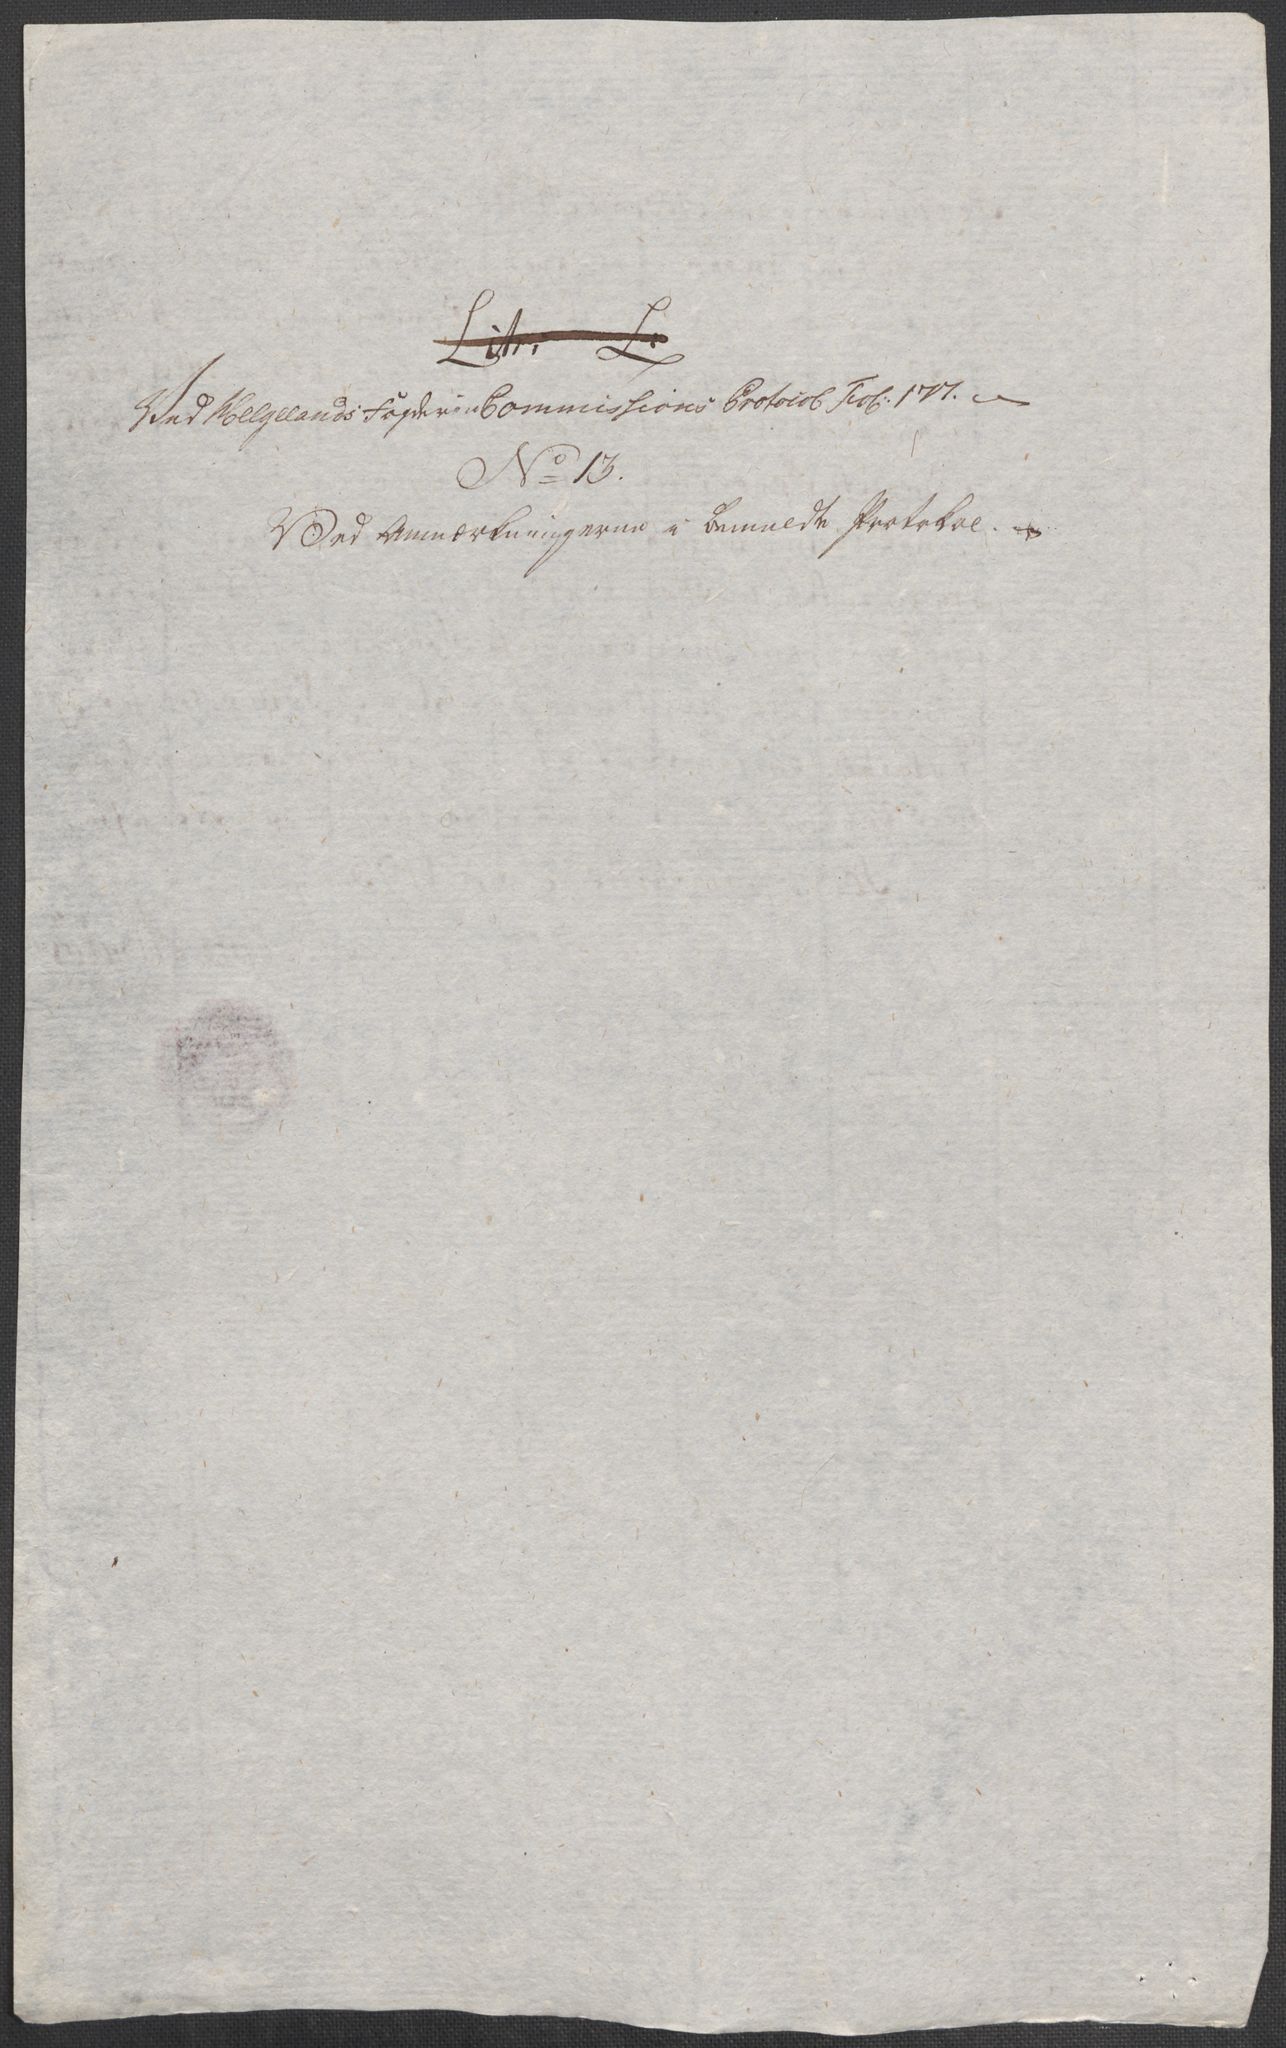 Litr: L:
Ved Helgelands Fogderies Commissions Protocol Fol: 177.
No 13.
Ved Anmærkningerne i bemeldte Protokol.